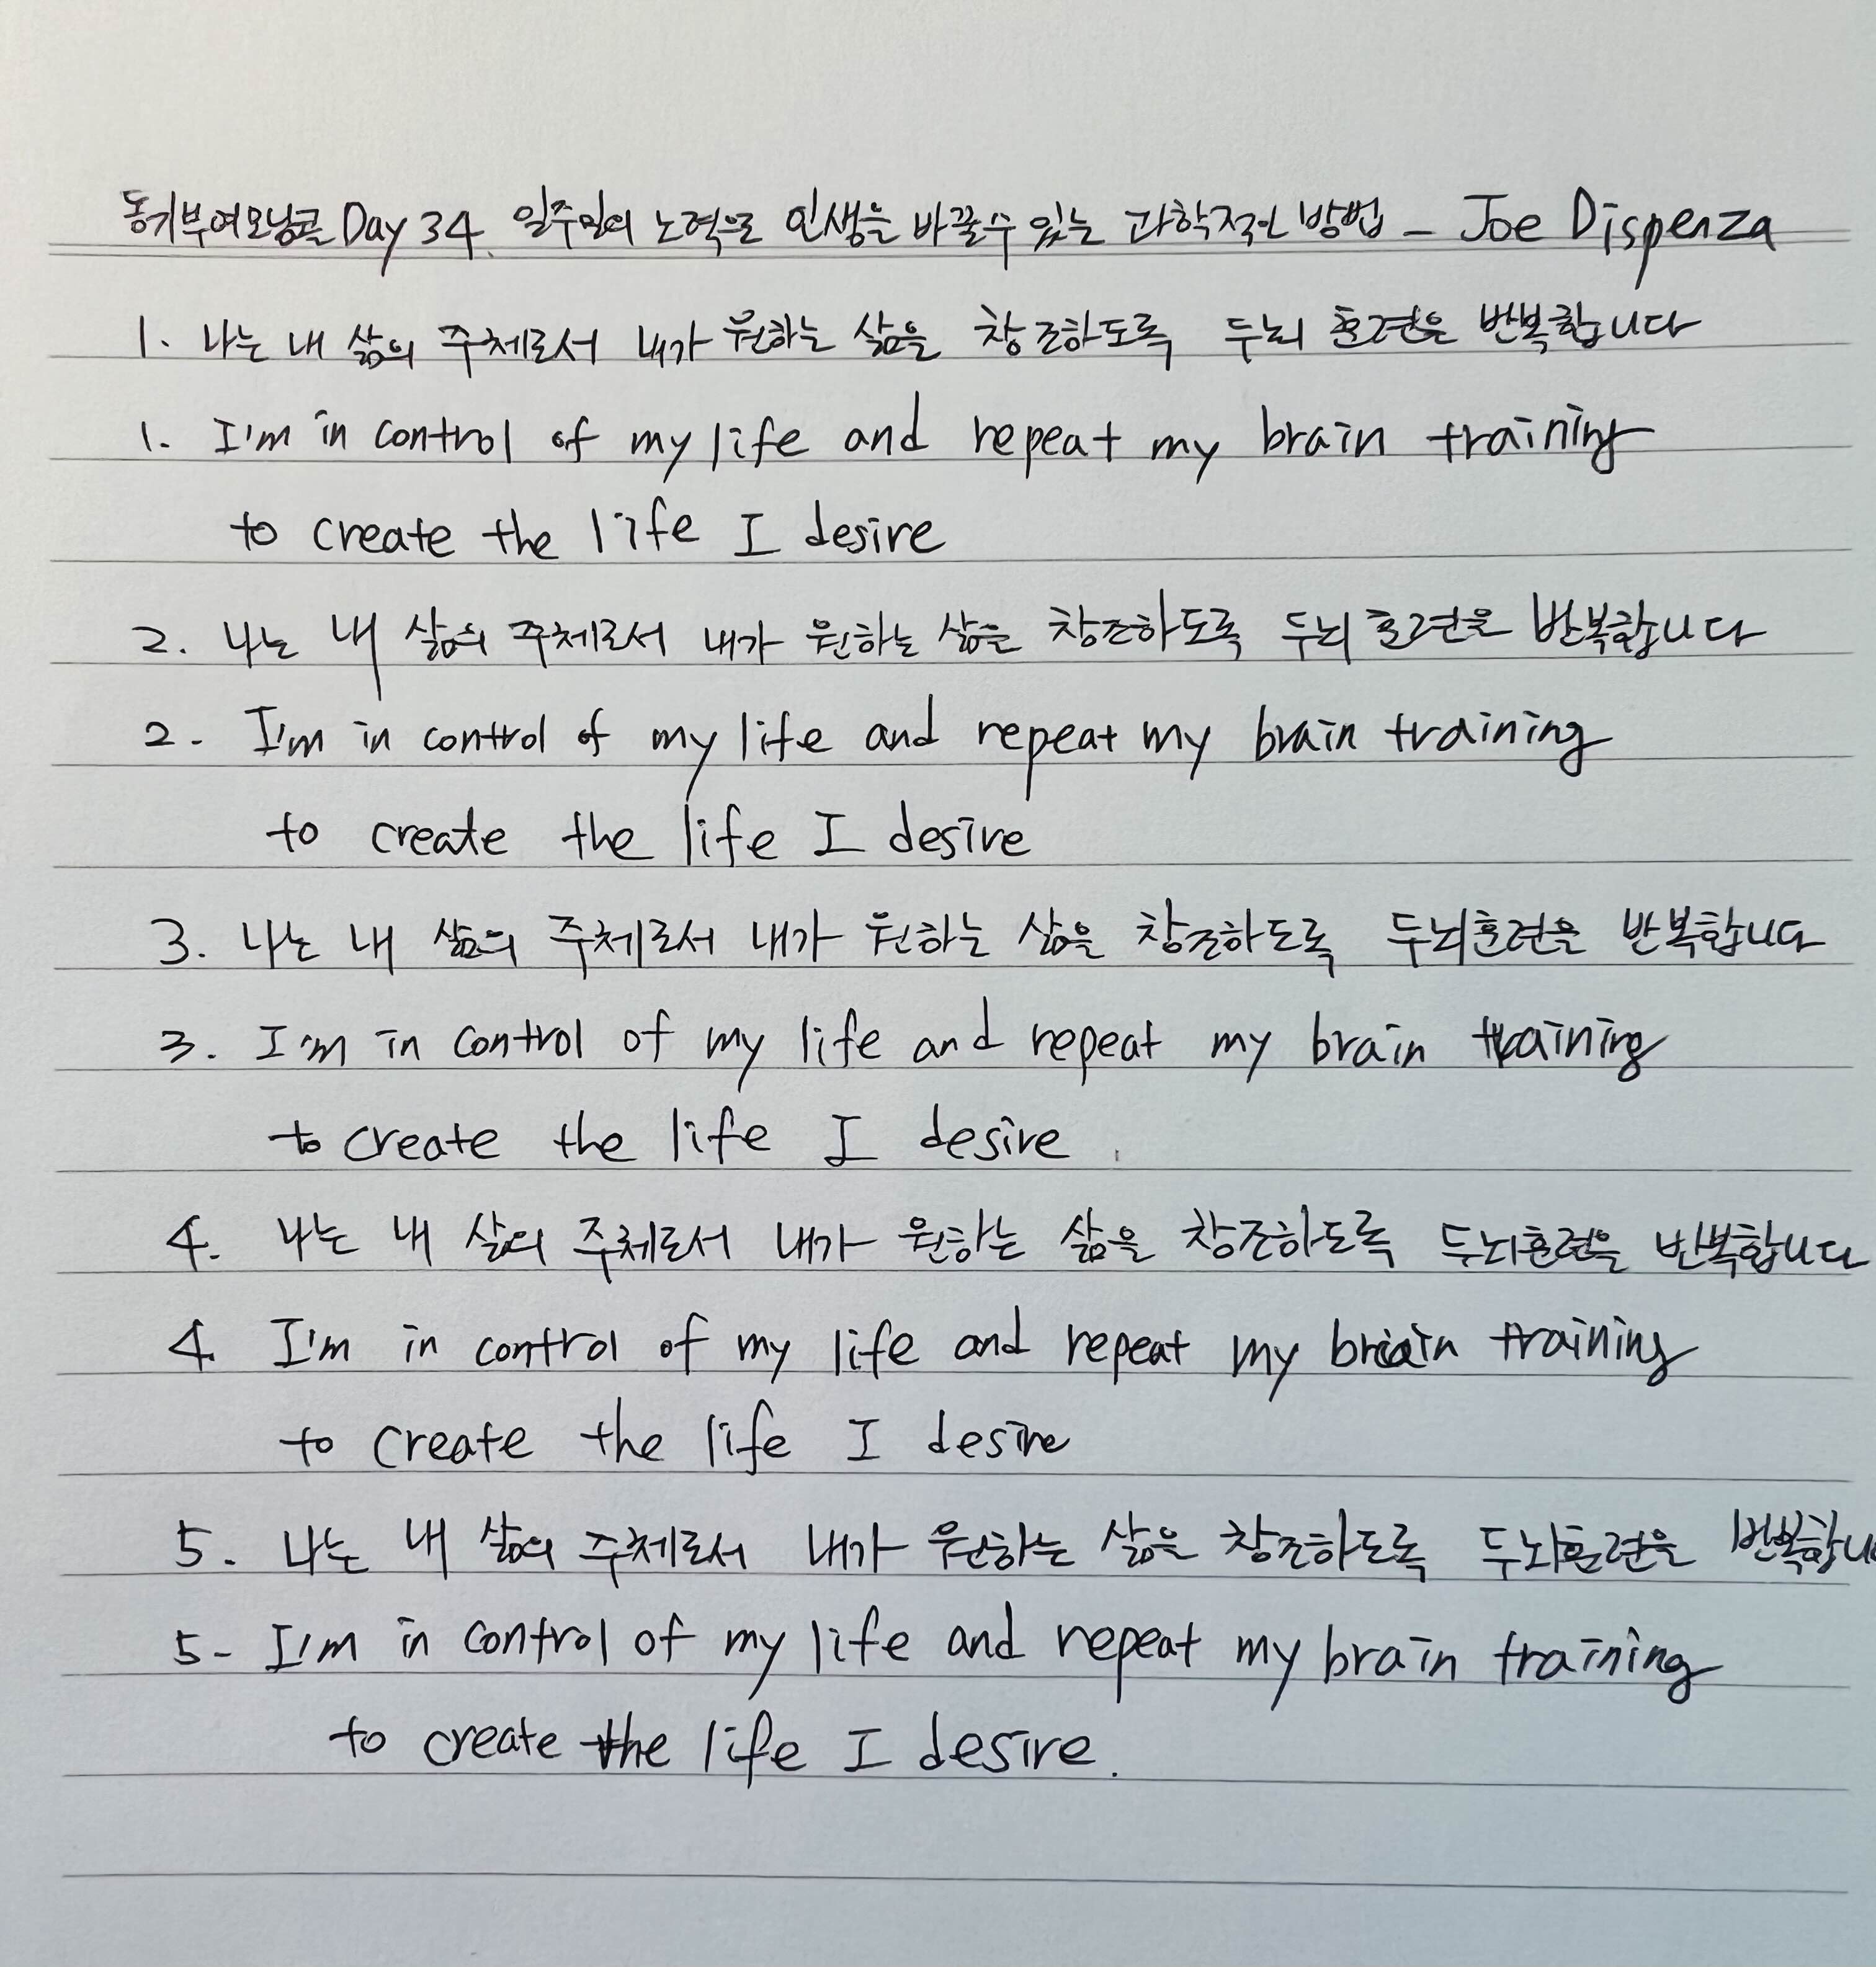 동기부여모닝콜 Day 34. 일주일의 노력으로 인생을 바꿀수 있는 과학적인 방법 - Joe Dispenza
1. 나는 내 삶의 주체로서 내가 원하는 삶을 창조하도록 두뇌 훈련을 반복합니다
1. I'm in control of my life and repeat my brain training
to create the life I desire
2. 나는 내 삶의 주체로서 내가 원하는 삶을 창조하도록 두뇌 훈련을 반복합니다
2. I'm in control of my life and repeat my brain training
to create the life I desire
3. 나는 내 삶의 주체로서 내가 원하는 삶을 창조하도록 두뇌훈련을 반복합니다
3. I'm in control of my life and repeat my brain training
to create the life I desire.
4. 나는 내 삶의 주체로서 내가 원하는 삶을 창조하도록 두뇌훈련을 반복합니다
4. I'm in control of my life and repeat my brain training
to create the life I desire
5. 나는 내 삶의 주체로서 내가 원하는 삶을 창조하도록 두뇌훈련을 반복합니
5- I'm in control of my life and repeat my brain training
to create the life I desire.